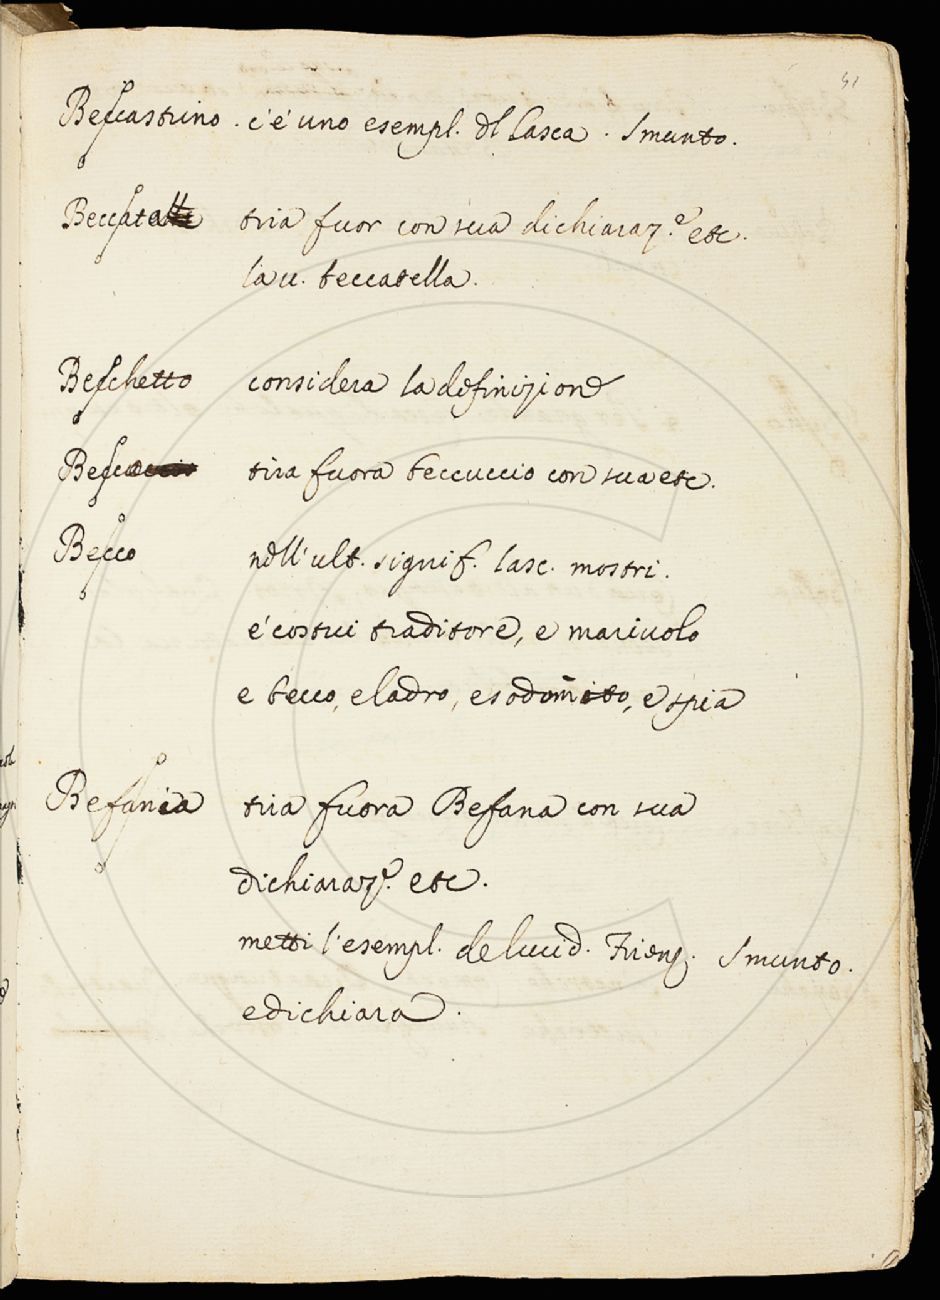 51
Beccastrino. c'è uno esempl. dl Lasca. Smunto.
Beccatelle tira fuor con sua dichiaraz.e etc.
la v. beccatella.
Becchetto considera la definizione
Beccuccio tira fuora beccuccio con sua etc.
Becco nell'ult. signif. lasc. mostri.
è costui traditore, e mariuolo
e becco, e ladro, e sodomito, e spia
Befania tira fuora Befana con sua
dichiaraz.e etc.
metti l'esempl. de lucid. Firenz. Smunto.
e dichiara.